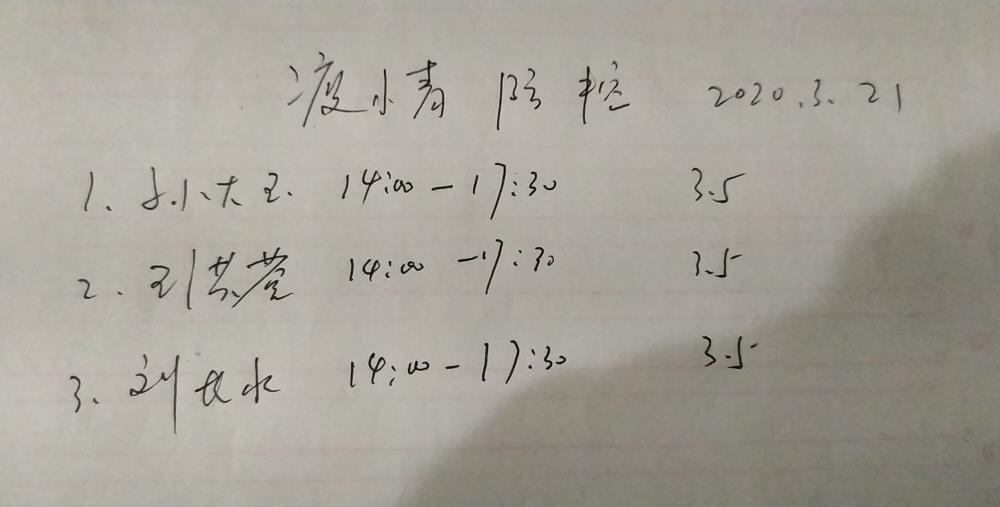 渡小青 防控 2020.3.21
1. 小大王 14:00-17:30 3.5
2. 刘洪营 14:00-17:30 3.5
3. 刘长水 14:00-17:30 3.5